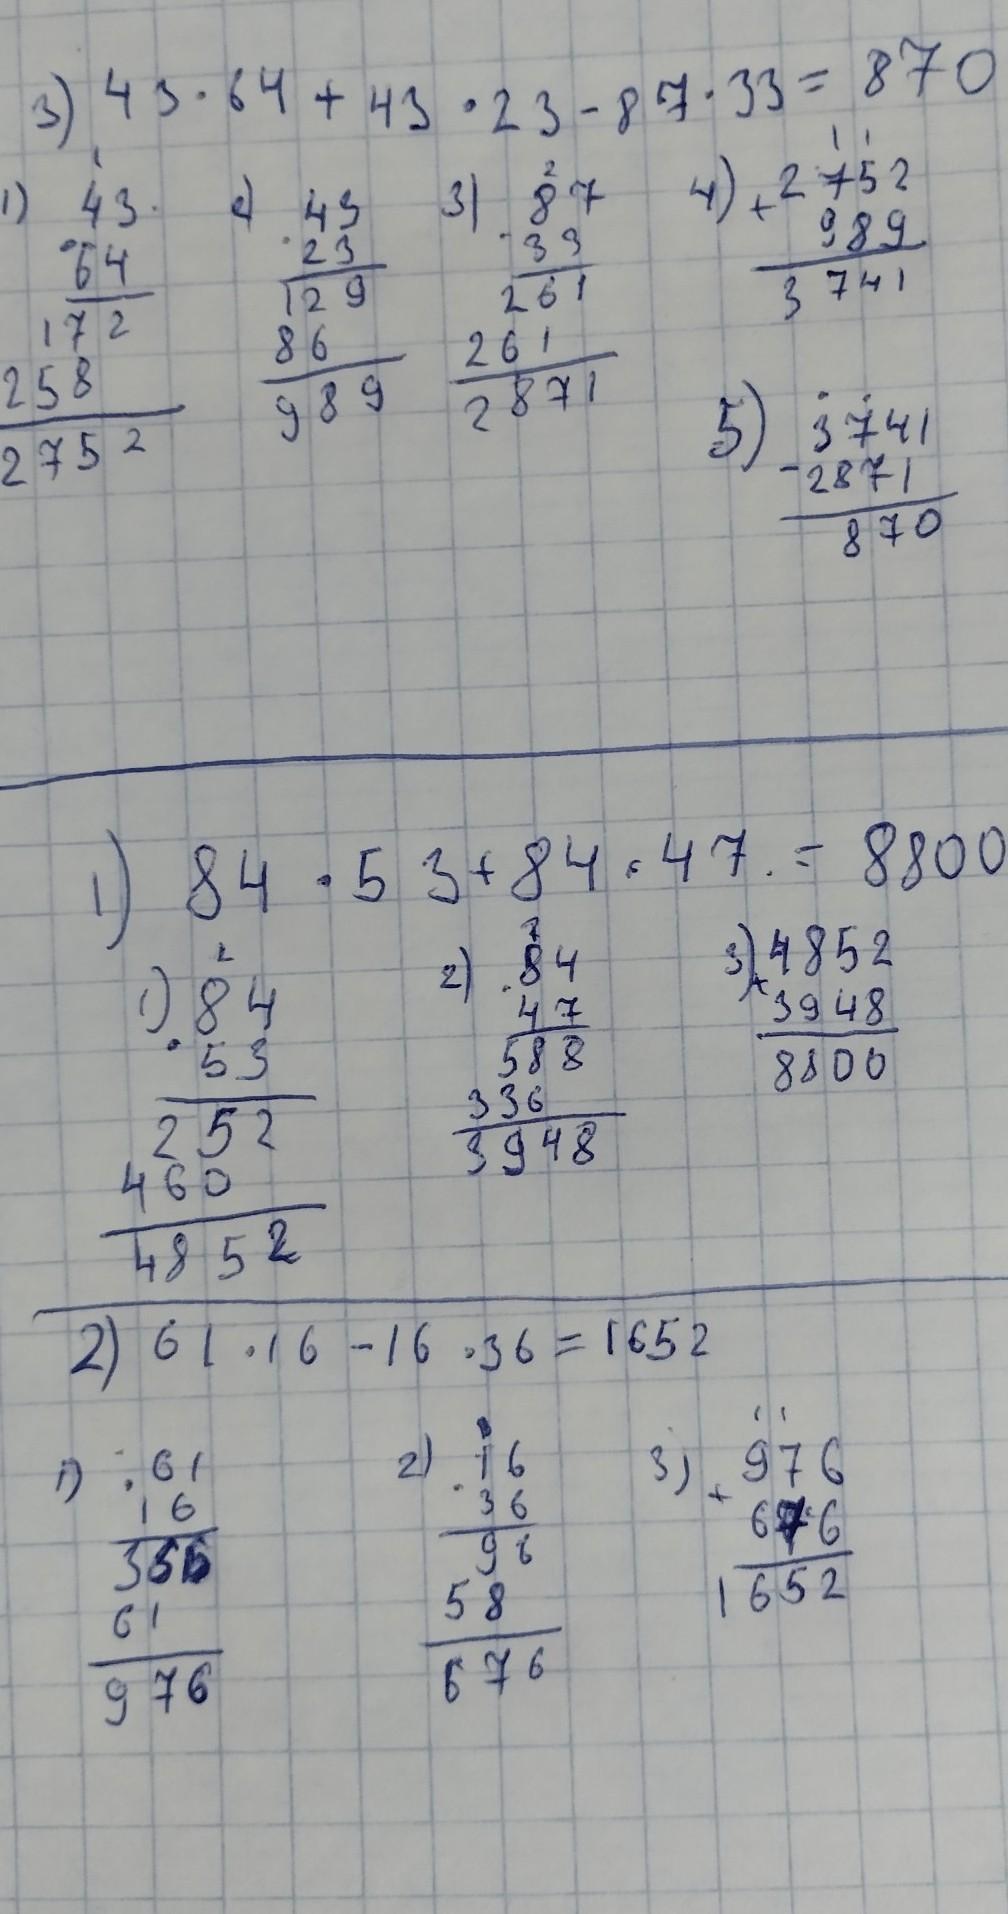 3) 43 · 64 + 43 · 23 - 87 · 33 = 870
1) 43 · 64
172
258
2752
2) 43 · 23
129
86
989
3) 87 · 33
261
261
2871
4) + 2752
989
3741
5) 3741
- 2871
870
1) 84 · 53 + 84 · 47 = 8800
1) 84
· 53
252
460
4852
2) · 84
47
588
336
3948
3) + 4852
3948
8800
2) 61 · 16 - 16 · 36 = 1652
1) · 61
16
366
61
976
2) · 16
36
96
58
676
3) + 976
676
1652